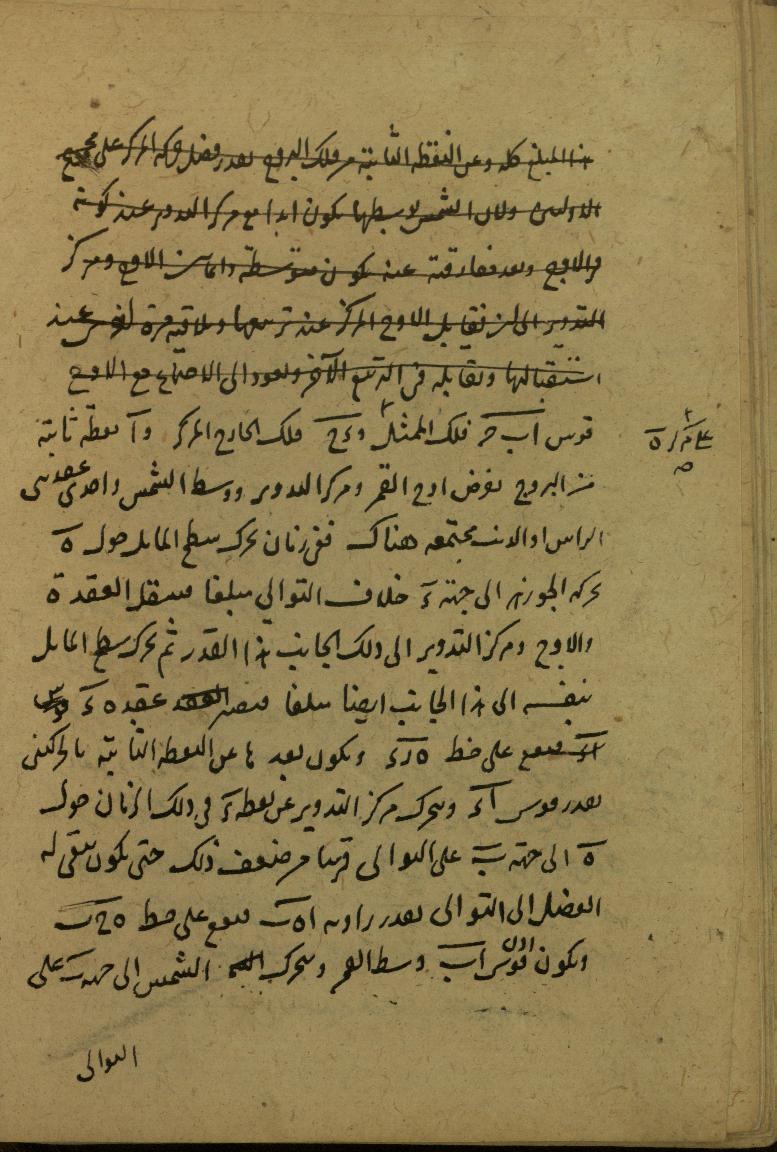 هذا المبلغ كله وعن النقطة الثابتة من فلك البروج بقدر فضل حركة المركز على مجموع
الاولين ولان الشمس بوسطها يكون ابدا مع مركز التدوير عند كونه
والاوج وبعد مفارقة عنه يكون متوسطة دائما بين الاوج ومركز
التدوير الى ان يقابل الاوج المركز عند تربيعها وملاقيه مرة اخرى عند
استقبالها ويقابله في التربيع الآخر ويعود الى الاجتماع مع الاوج
قوس اب ح فلك الممثل و ء ح فلك الخارج المركز و آ نقطة ثابتة
من البروج نفرض اوج القمر ومركز التدوير ووسط الشمس واحدى عقدتي
الراس او الذنب مجتمعه هناك ففي زمان تحرك سطح المايل حول ه
بحركة الجوزهر الى جهة ء خلاف التوالي مبلغا ينتقل العقدة
والاوج ومركز التدوير الى ذلك الجانب هذا القدر ثم تحرك سطح المايل
بنفسه الى هذا الجانب ايضا مبلغا فيصير عقد ه ء
فيقع على خط ه ر ء ويكون بعدها عن النقطة الثابتة بالحركتين
بقدر قوس آ ء وتحرك مركز التدوير عن نقطة ء في ذلك الزمان حول
ه الى جهة ب على التوالي قريبا من ضعف ذلك حتى يكون يبقى له
الفضل الى التوالي بقدر زاوية ا ه ب فيقع على خط ه ح ب
ويكون قوس اب وسط القمر وتحرك الشمس الى جهة ب على
التوالي